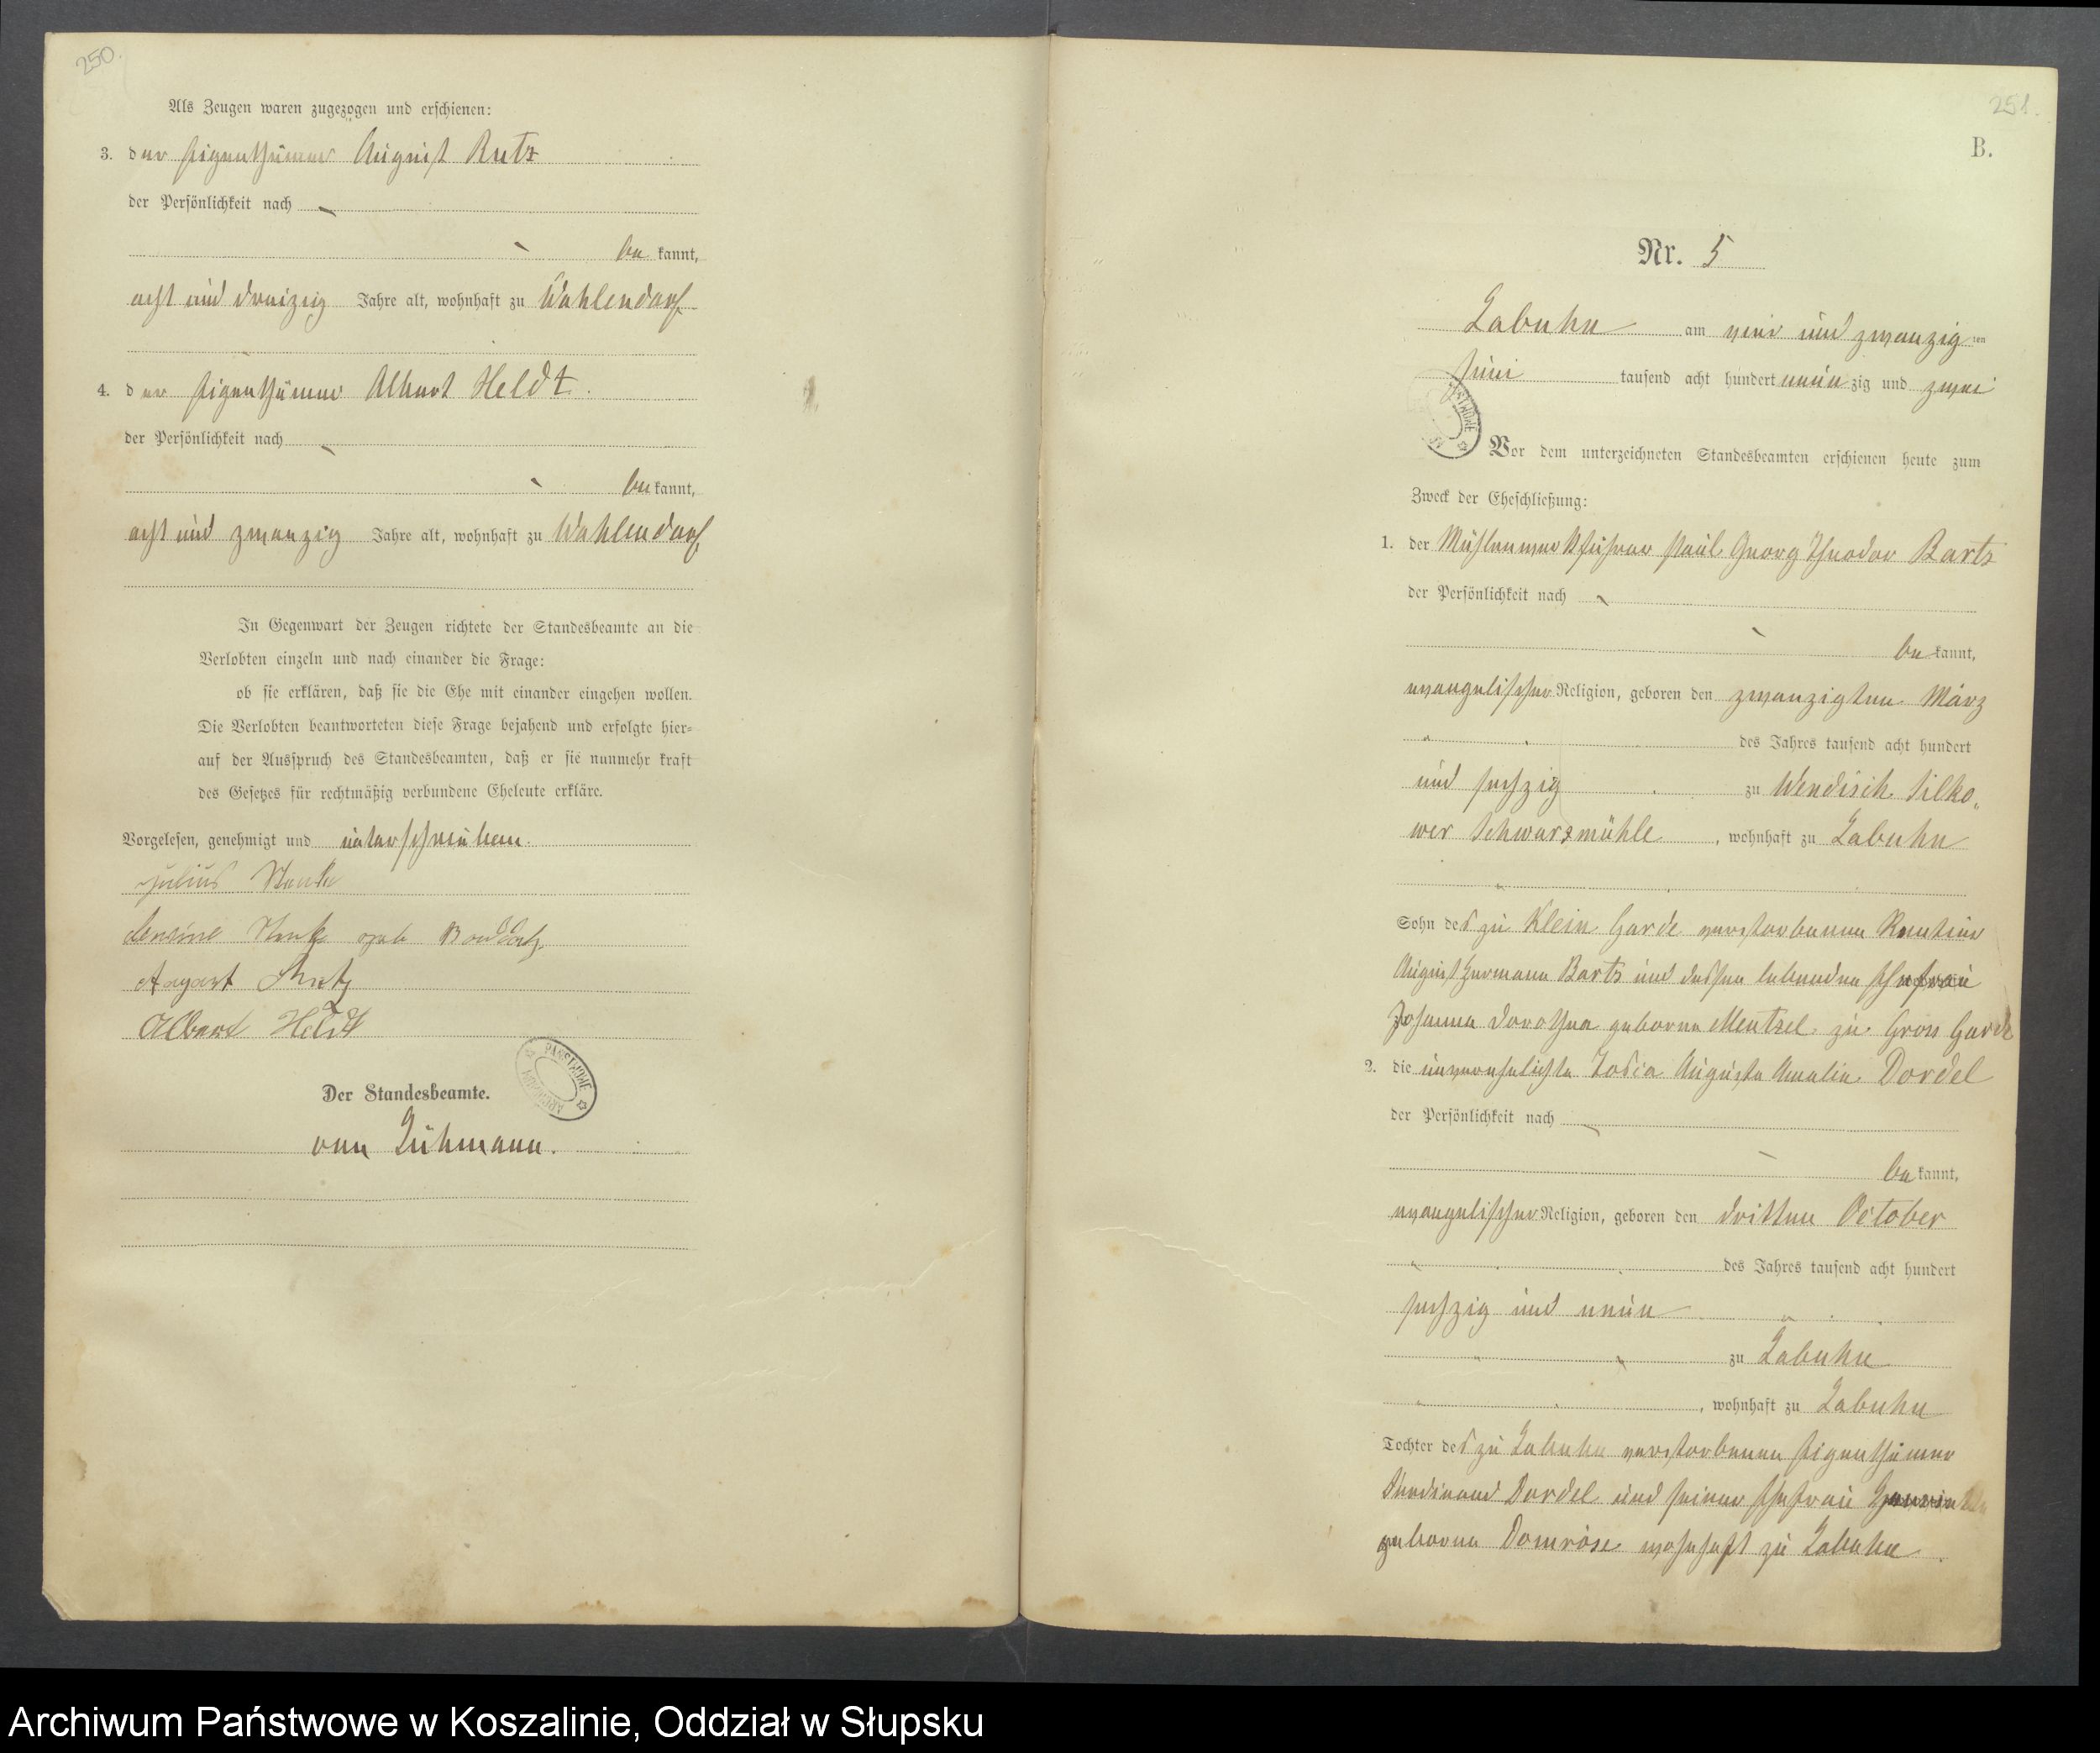 250.
Als Zeugen waren zugezogen und erschienen:
3. der Eigenthümer August Rutz
der Persönlichkeit nach
be kannt,
acht und dreizig Jahre alt, wohnhaft zu Wahlendorf
4. der Eigenthümer Albert Heldt.
der Persönlichkeit nach
be kannt,
acht und zwanzig Jahre alt, wohnhaft zu Wahlendorf,
In Gegenwart der Zeugen richtete der Standesbeamte an die
Verlobten einzeln und nach einander die Frage:
ob sie erklären, daß sie die Ehe mit einander eingehen wollen.
Die Verlobten beantworteten diese Frage bejahend und erfolgte hier=
auf der Ausspruch des Standesbeamten, daß er sie nunmehr kraft
des Gesetzes für rechtmäßig verbundene Eheleute erkläre.
Vorgelesen, genehmigt und unterschrieben.
Julius
geb
August Rutz
Albert Heldt
Der Standesbeamte.
von Lühmann.
251.
B.
Nr. 5
Labuhn am vier und zwanzig ten
Juni tausend acht hundert neun zig und zwei
Vor dem unterzeichneten Standesbeamten erschienen heute zum
Zweck der Eheschließung:
1. der Mühlenwerkführer Paul Georg Theodor Bartz
der Persönlichkeit nach
be kannt,
evangelischer Religion, geboren den zwanzigten März
des Jahres tausend acht hundert
und sechzig zu Wendisch Silko-
wer Schwarzmühle, wohnhaft zu Labuhn
Sohn des zu Klein Garde verstorbenen Rentier
August Hermann Bartz und dessen lebenden Ehefrau
Johanna Dorothea geborne Mentzel zu Gross Garde
2. die unverehelichte Auguste Amalie Dordel
der Persönlichkeit nach
be kannt,
evangelischer Religion, geboren den dritten October
des Jahres tausend acht hundert
sechzig und neun
zu Labuhn
, wohnhaft zu Labuhn
Tochter des zu Labuhn verstorbenen Eigenthümer
Ferdinand Dordel und seiner Ehefrau
geborne Domröse wohnhaft zu Labuhn
Archiwum Państwowe w Koszalinie, Oddział w Słupsku